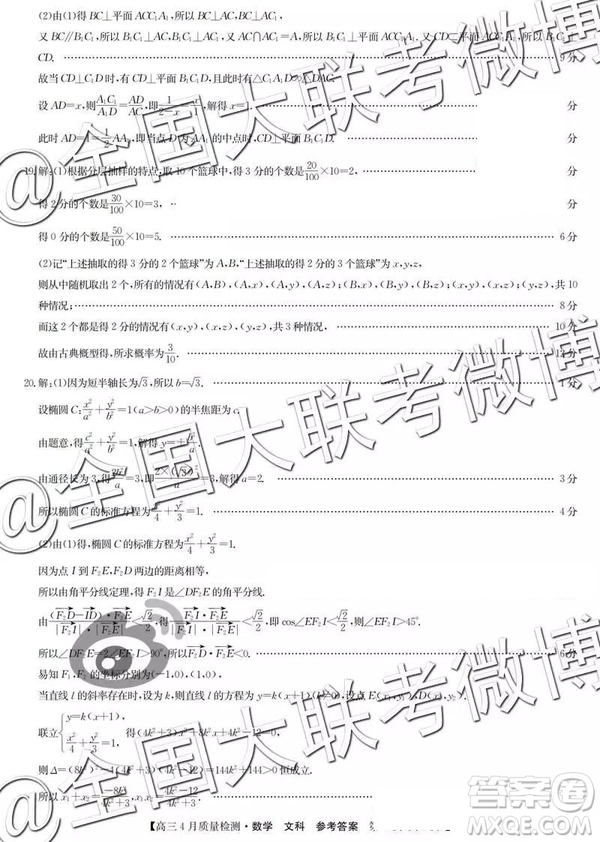 (2)由(1)得 BC⊥平面 ACC₁A₁,所以 BC⊥AC,BC⊥AC₁.
又 BC∥B₁C₁,所以 B₁C₁⊥AC,B₁C₁⊥AC₁,又 AC∩AC₁=A,所以 B₁C₁⊥平面 ACC₁A₁.又 CD⊂平面 ACC₁A₁,所以 B₁C₁⊥
CD. 9 分
故当 CD⊥C₁D 时,有 CD⊥平面 B₁C₁D,且此时有△C₁A₁D∽△DAC.
设 AD=x,则A₁C₁/A₁D=AD/AC,即1/(2-x)=x/1,解得 x=1. 分
此时 AD=1=1/2AA₁,即当点 D 为 AA₁ 的中点时,CD⊥平面 B₁C₁D. 分
19.解:(1)根据分层抽样的特点,取 10 个篮球中,得 3 分的个数是20/100×10=2, 分
得 2 分的个数是30/100×10=3, 分
得 0 分的个数是50/100×10=5. 6 分
(2)记“上述抽取的得 3 分的 2 个篮球”为 A,B,“上述抽取的得 2 分的 3 个篮球”为 x,y,z,
则从中随机取出 2 个,所有情况有(A,B),(A,x),(A,y),(A,z),(B,x),(B,y),(B,z),(x,y),(x,z),(y,z),共 10
种情况; 8 分
而这 2 个都是得 2 分的情况有(x,y),(x,z),(y,z),共 3 种情况, 10 分
故由古典概型得,所求概率为3/10. 12 分
20.解:(1)因为短半轴长为√3,所以 b=√3. 1 分
设椭圆 C:x²/a²+y²/b²=1(a>b>0)的半焦距为 c,
由题意,得c²/a²+y²/b²=1,解得 y=±b²/a.
由通径长为 3,得2b²/a=3,即2×(√3)²/a=3,解得 a=2. 3 分
所以椭圆 C 的标准方程为x²/4+y²/3=1. 4 分
(2)由(1)得,椭圆 C 的标准方程为x²/4+y²/3=1.
因为点 I 到 F₂E,F₂D 两边的距离相等,
所以由角平分线定理,得 F₂I 是∠DF₂E 的角平分线.
由(F₂D-ID)·F₂E/|F₂I|·|F₂E|<√2/2,得F₂I·F₂E/|F₂I|·|F₂E|<√2/2,即 cos∠EF₂I<√2/2,则∠EF₂I>45°.
所以∠DF₂E=2∠EF₂I>90°,所以F₂D·F₂E<0. 6 分
易知 F₁,F₂ 的坐标分别为(-1,0),(1,0),
当直线 l 的斜率存在时,设为 k,则直线 l 的方程为 y=k(x+1)(k≠0),设点 E(x₁,y₁),D(x₂,y₂).
联立{y=k(x+1), x²/4+y²/3=1,得(4k²+3)x²+8k²x+4k²-12=0,
则 Δ=(8k²)²-4(4k²+3)(4k²-12)=144k²+144>0 恒成立.
所以 x₁+x₂=-8k²/4k²+3,x₁x₂=4k²-12/4k²+3.
【高三 4 月质量检测·数学 文科 参考答案
@全国大联考微博
@全国大联考微博
@全国大联考微博
答案圈